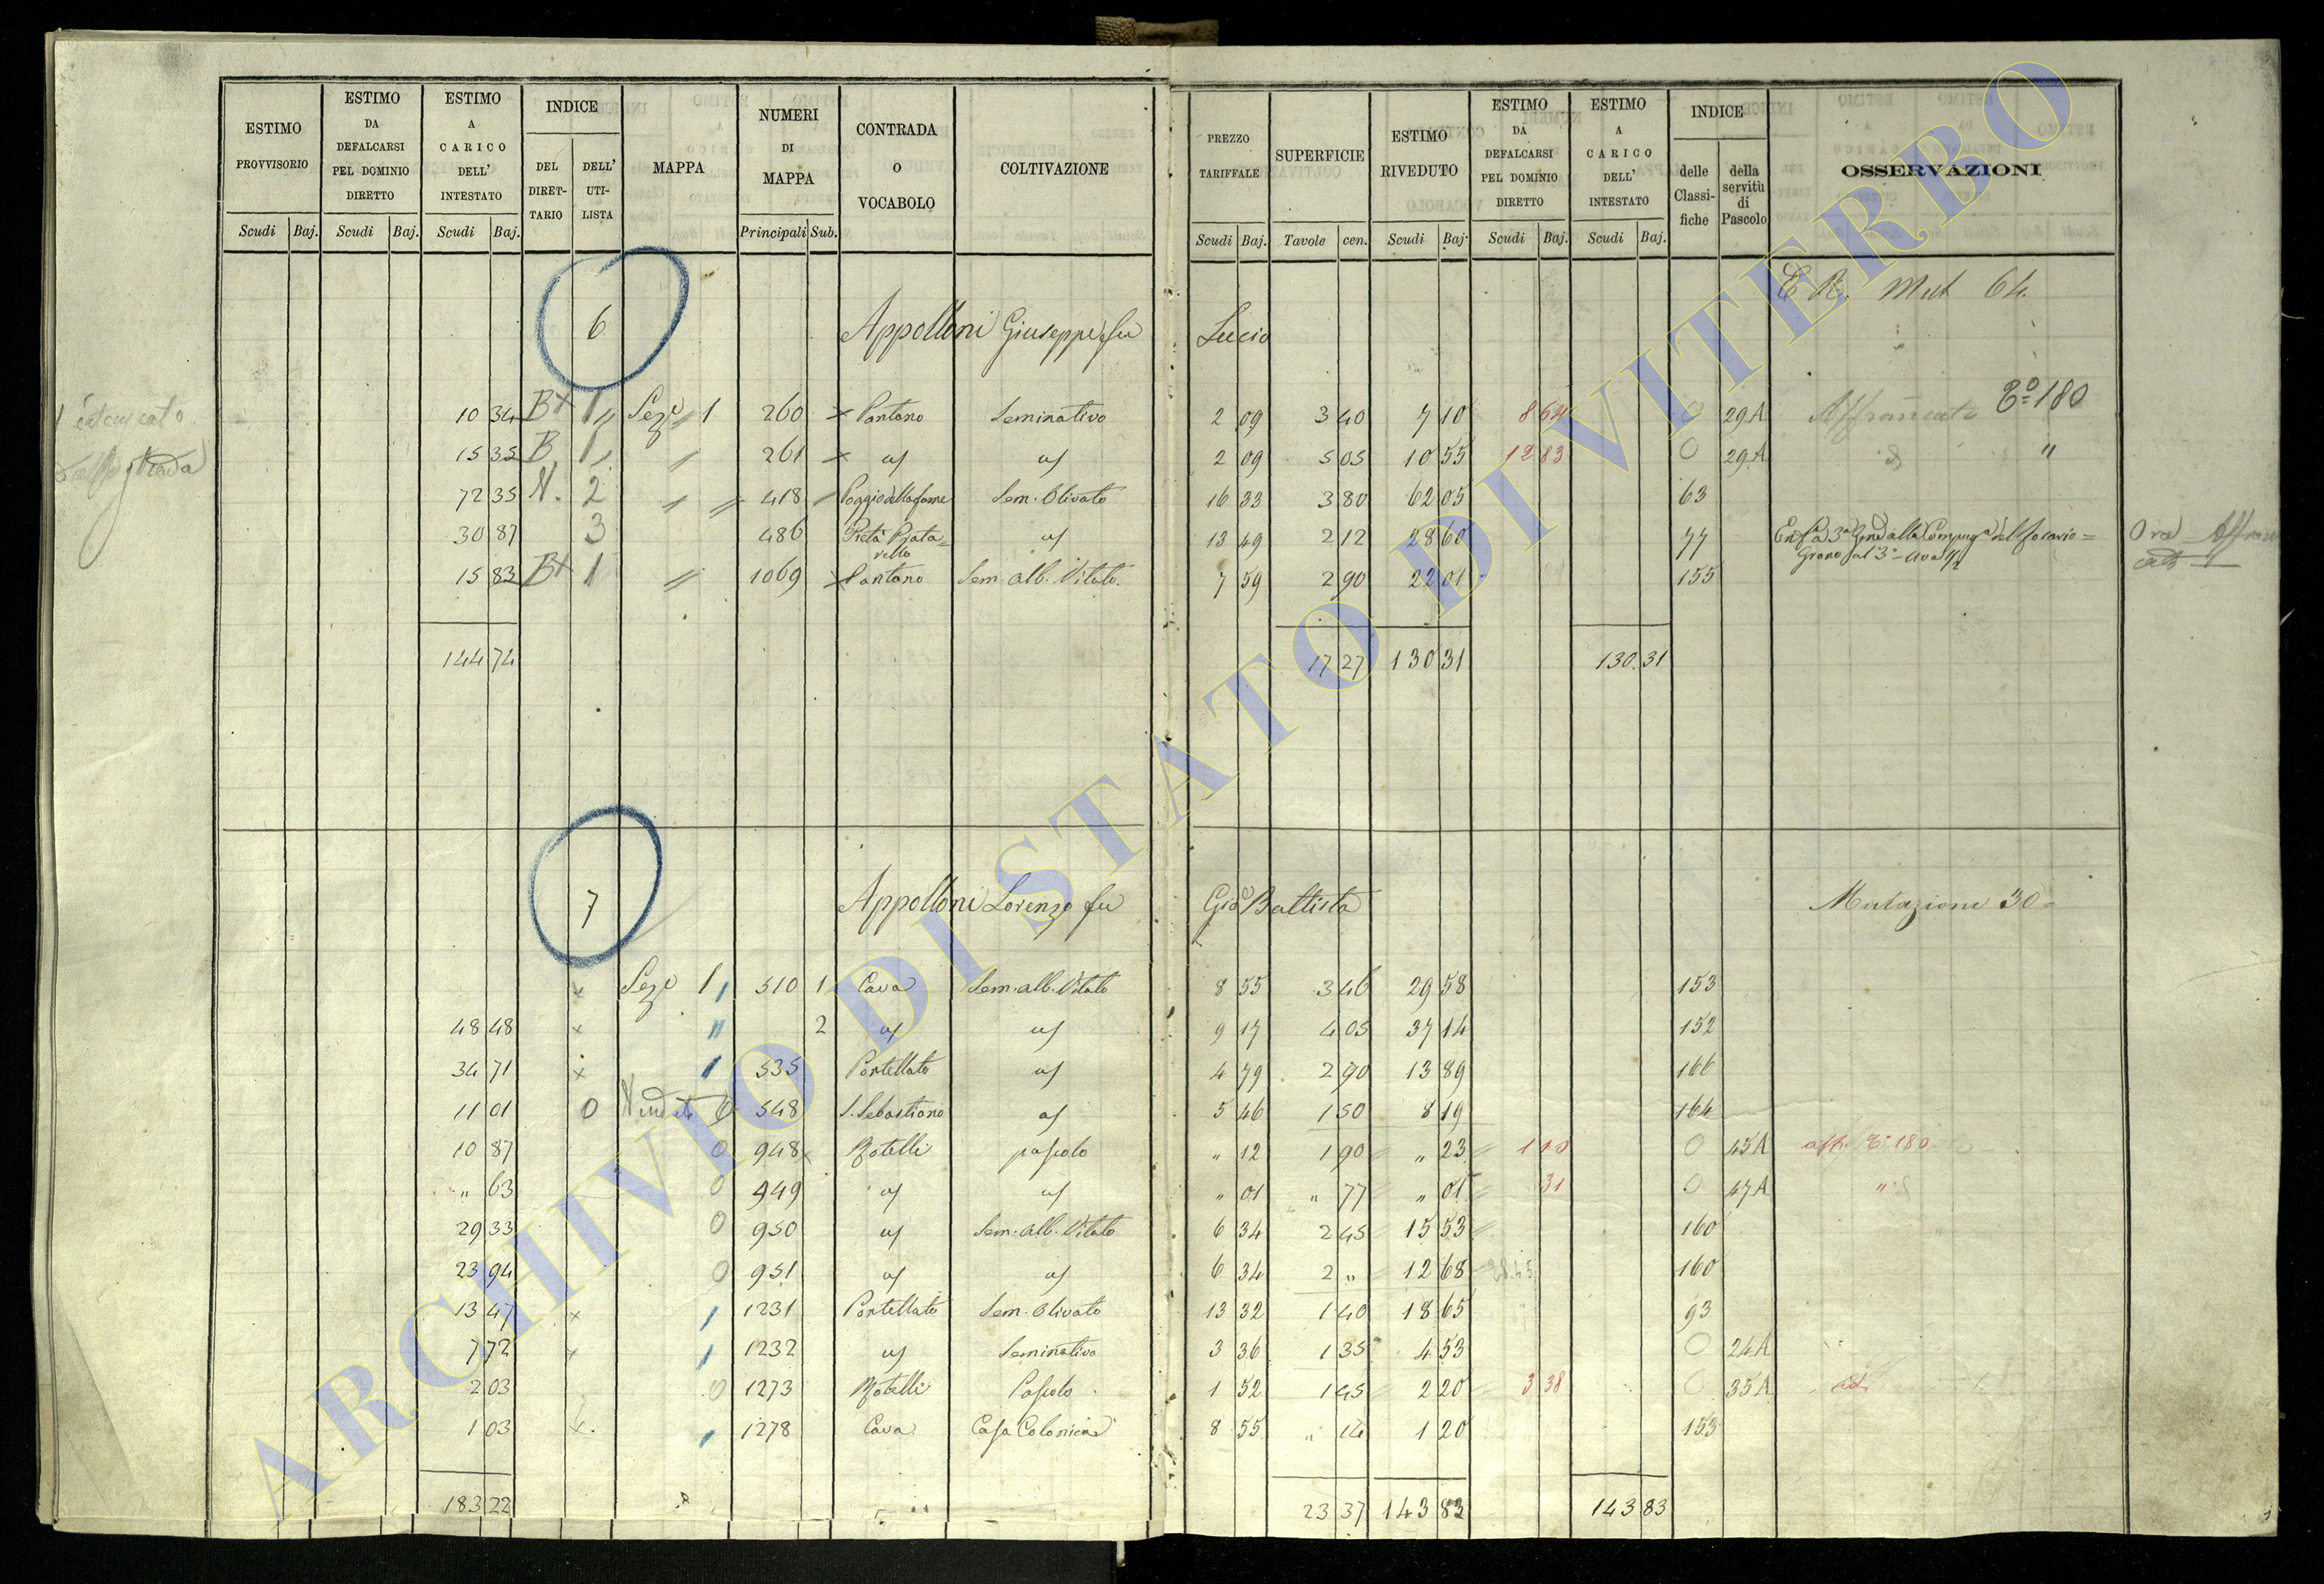 ESTIMO PROVVISORIO Scudi Baj.
ESTIMO DA DEFALCARSI PEL DOMINIO DIRETTO Scudi Baj.
ESTIMO A CARICO DELL' INTESTATO Scudi Baj.
INDICE DEL DIRETTARIO DELL' UTILISTA
MAPPA
NUMERI DI MAPPA Principali Sub.
CONTRADA O VOCABOLO
COLTIVAZIONE
PREZZO TARIFFALE Scudi Baj.
SUPERFICIE Tavole cen.
ESTIMO RIVEDUTO Scudi Baj.
ESTIMO DA DEFALCARSI PEL DOMINIO DIRETTO Scudi Baj.
ESTIMO A CARICO DELL' INTESTATO Scudi Baj.
INDICE delle Classifiche della servitù di Pascolo
OSSERVAZIONI
Mut 64.
6 Appolloni Giuseppe fu Lucio
10 34 B+ 1 Seze 1 260 x Pantano Seminativo 2 09 3 40 7 10 8 64 0 29A Affrancato 180
15 35 B 1 " 261 x us us 2 09 5 05 10 55 12 83 0 29.A "
72 35 N. 2 " 418 Poggio della fame Sem. Olivato 16 33 3 80 62 05 63
30 87 3 486 Pietà Pratarello us 13 49 2 12 28 60 77
15 83 B+ 1 " 1069 x Pantano Sem. alb. Vitato. 7 59 2 90 22 01 155
144 74 17 27 130 31 130.31
7 Appolloni Lorenzo fu Gio Battista Mutazione 30=
x Seze 1 510 1 Cava Sem. alb. Vitato 8 55 3 46 29 58 153
48 48 x " 2 us us 9 17 4 05 37 14 152
34 71 x 1 535 Portellato us 4 79 2 90 13 89 166
11 01 0 0 548 S. Sebastiano us 5 46 1 50 8 19 164
10 87 0 948 x Rotelli pascolo " 12 1 90 " 23 1 10 0 45A aff. 180
" 63 0 949 us us " 01 " 77 " 01 31 0 47A "
29 33 0 950 us Sem. alb. Vitato 6 34 2 45 15 53 160
23 94 0 951 us us 6 34 2 " 12 68 160
13 47 x 1 1231 Portellato Sem. Olivato 13 32 1 40 18 65 93
7 72 x 1 1232 us Seminativo 3 36 1 35 4 53 0 24A
2 03 0 1273 Rotelli Pascolo 1 52 1 45 2 20 3 38 0 35A
1 03 x 1 1278 Cava Casa Colonica 8 55 " 14 1 20 153
183 22 23 37 143 83 143 83
ARCHIVIO DI STATO DI VITERBO